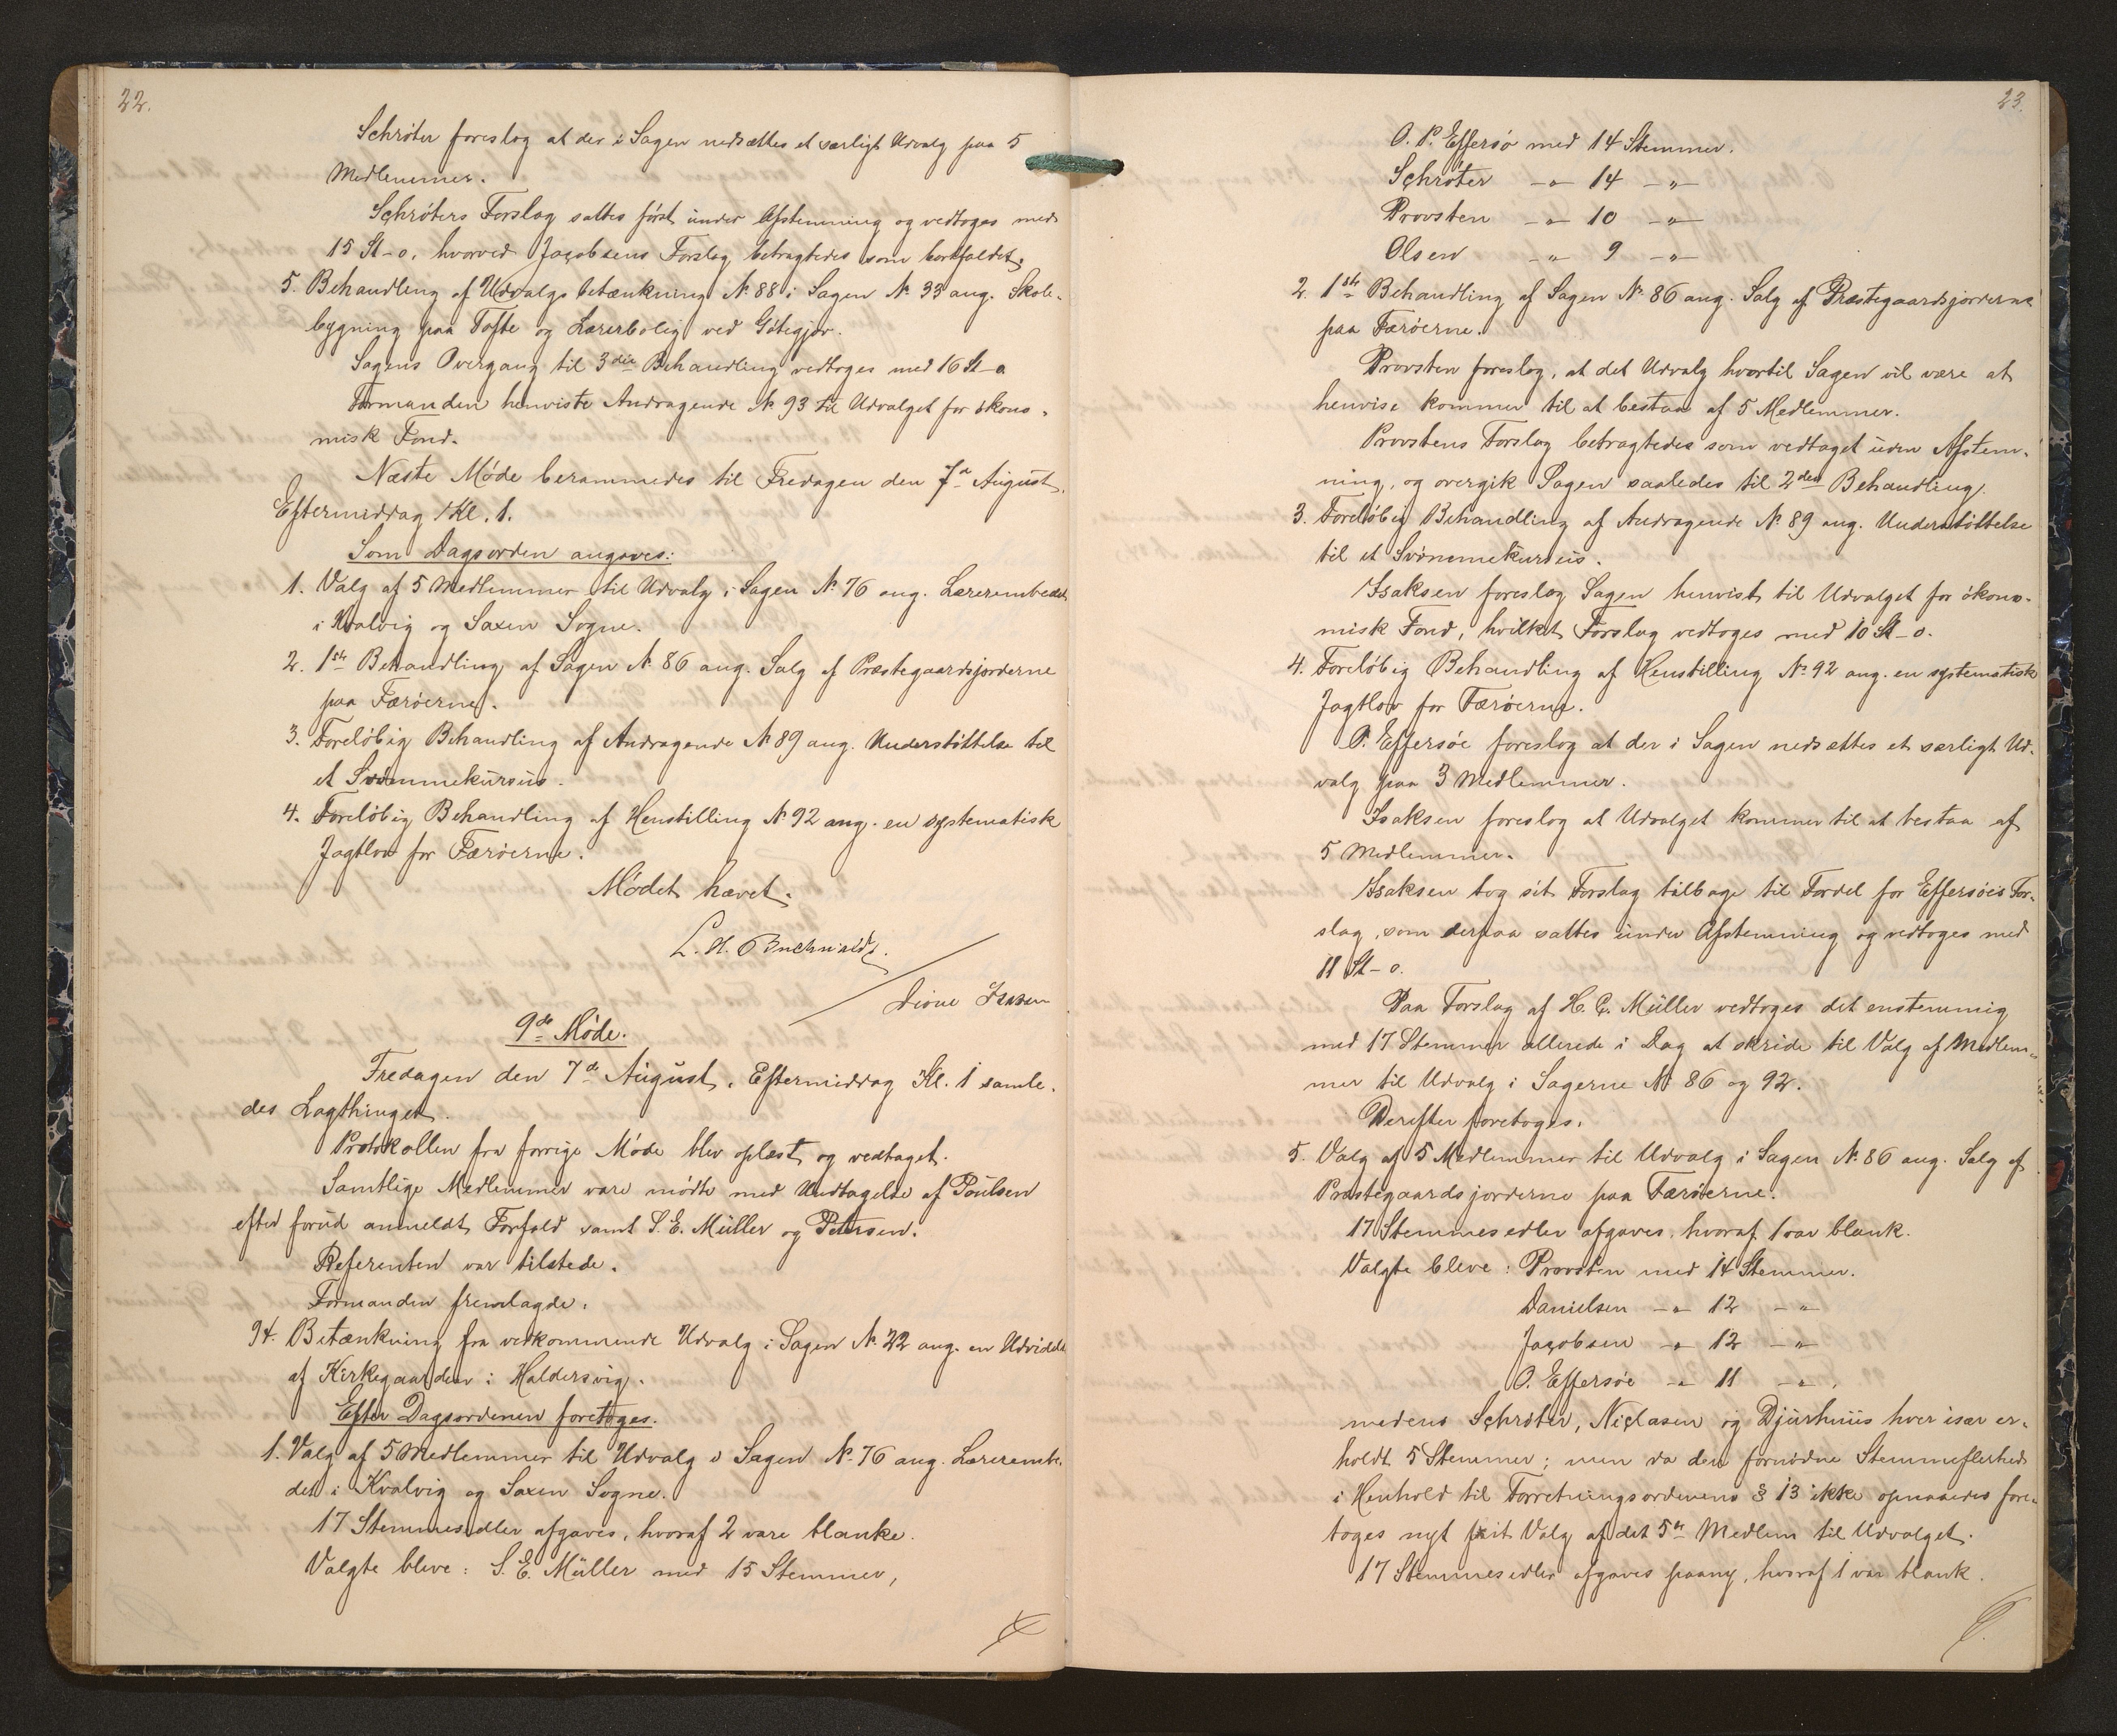 22.
Schröter foreslog at der i Sagen nedsættes et særligt Udvalg paa 5
Medlemmer.
Schröters Forslag sattes först under Afstemning og vedtoges med
15 St-o, hvorved Jacobsens Forslag betragtedes som bortfaldet.
5. Behandling af Udvalgsbetænkning No 88 i Sagen No 33 ang. Skole-
bygning paa Tofte og Lærerbolig ved Götegjov.
Sagens Overgang til 3die Behandling vedtoges med 16 St-o
Formanden henviste Andragende No 93 til Udvalget for ökono-
misk Fond.
Næste Möde berammedes til Fredagen den 7de August,
Eftermiddag Kl. 1.
Som Dagsorden angaves:
1. Valg af 5 Medlemmer til Udvalg i Sagen No 76 ang. Lærerembedet
i Kvalvig og Saxen Sogne.
2. 1ste Behandling af Sagen No 86 ang. Salg af Præstegaardsjorderne
paa Færöerne.
3. Forelöbig Behandling af Andragende No 89 ang. Understöttelse til
et Svömmekursus.
4. Forelöbig Behandling af Henstilling No 92 ang. en systematisk
Jagtlov for Færöerne.
Mödet hævet.
L. H. Buchwaldt.
9de Möde.
Fredagen den 7de August, Eftermiddag Kl. 1 samle-
des Lagthinget.
Protokollen fra forrige Möde blev oplæst og vedtaget.
Samtlige Medlemmer vare mödte med Undtagelse af Poulsen
efter forud anmeldt Forfald samt S. E. Müller og Petersen.
Referenten var tilstede.
Formanden fremlagde:
94. Betænkning fra vedkommende Udvalg i Sagen No 22 ang. en Udvidelse
af Kirkegaarden i Haldersvig.
Efter Dagsordenen foretoges:
1. Valg af 5 Medlemmer til Udvalg i Sagen No 76 ang. Lærerembe-
det i Kvalvig og Saxen Sogne.
17 Stemmesedler afgaves, hvoraf 2 vare blanke.
Valgte bleve: S. E. Müller med 15 Stemmer,
23.
O. P. Effersö med 14 Stemmer.
Schröter -"- 14 -"-
Provsten -"- 10 -"-
Olsen -"- 9 -"-
2. 1ste Behandling af Sagen No 86 ang. Salg af Præstegaardsjorderne
paa Færöerne.
Provsten foreslog, at det Udvalg hvortil Sagen vil være at
henvise kommer til at bestaa af 5 Medlemmer.
Provstens Forslag betragtedes som vedtaget uden Afstem-
ning, og overgik Sagen saaledes til 2den Behandling.
3. Forelöbig Behandling af Andragende No 89 ang. Understöttelse
til et Svömmekursus.
Isaksen foreslog Sagen henvist til Udvalget for ökono-
misk Fond, hvilket Forslag vedtoges med 10 St-o.
4. Forelöbig Behandling af Henstilling No 92 ang. en systematisk
Jagtlov for Færöerne.
O. Effersöe foreslog at der i Sagen nedsættes et særligt Ud-
valg paa 3 Medlemmer.
Isaksen foreslog at Udvalget kommer til at bestaa af
5 Medlemmer.
Isaksen tog sit Forslag tilbage til Fordel for Effersöes For-
slag, som derpaa sattes under Afstemning og vedtoges med
11 St-o.
Paa Forslag af H. C. Müller vedtoges det enstemmig
med 17 Stemmer allerede i Dag at skride til Valg af Medlem-
mer til Udvalg i Sagerne No 86 og 92.
Derefter foretoges:
5. Valg af 5 Medlemmer til Udvalg i Sagen No 86 ang. Salg af
Præstegaardsjorderne paa Færöerne.
17 Stemmesedler afgaves, hvoraf 1 var blank.
Valgte bleve: Provsten med 14 Stemmer.
Danielsen -"- 12 -"-
Jacobsen -"- 12 -"-
O. Effersöe -"- 11 -"-,
medens Schröter, Niclasen og Djurhuus hver især er-
holdt 5 Stemmer; men da den fornödne Stemmeflerhed
i Henhold til Forretningsordenens § 13 ikke opnaaedes fore-
toges nyt frit Valg af det 5te Medlem til Udvalget.
17 Stemmesedler afgaves paany, hvoraf 1 var blank.